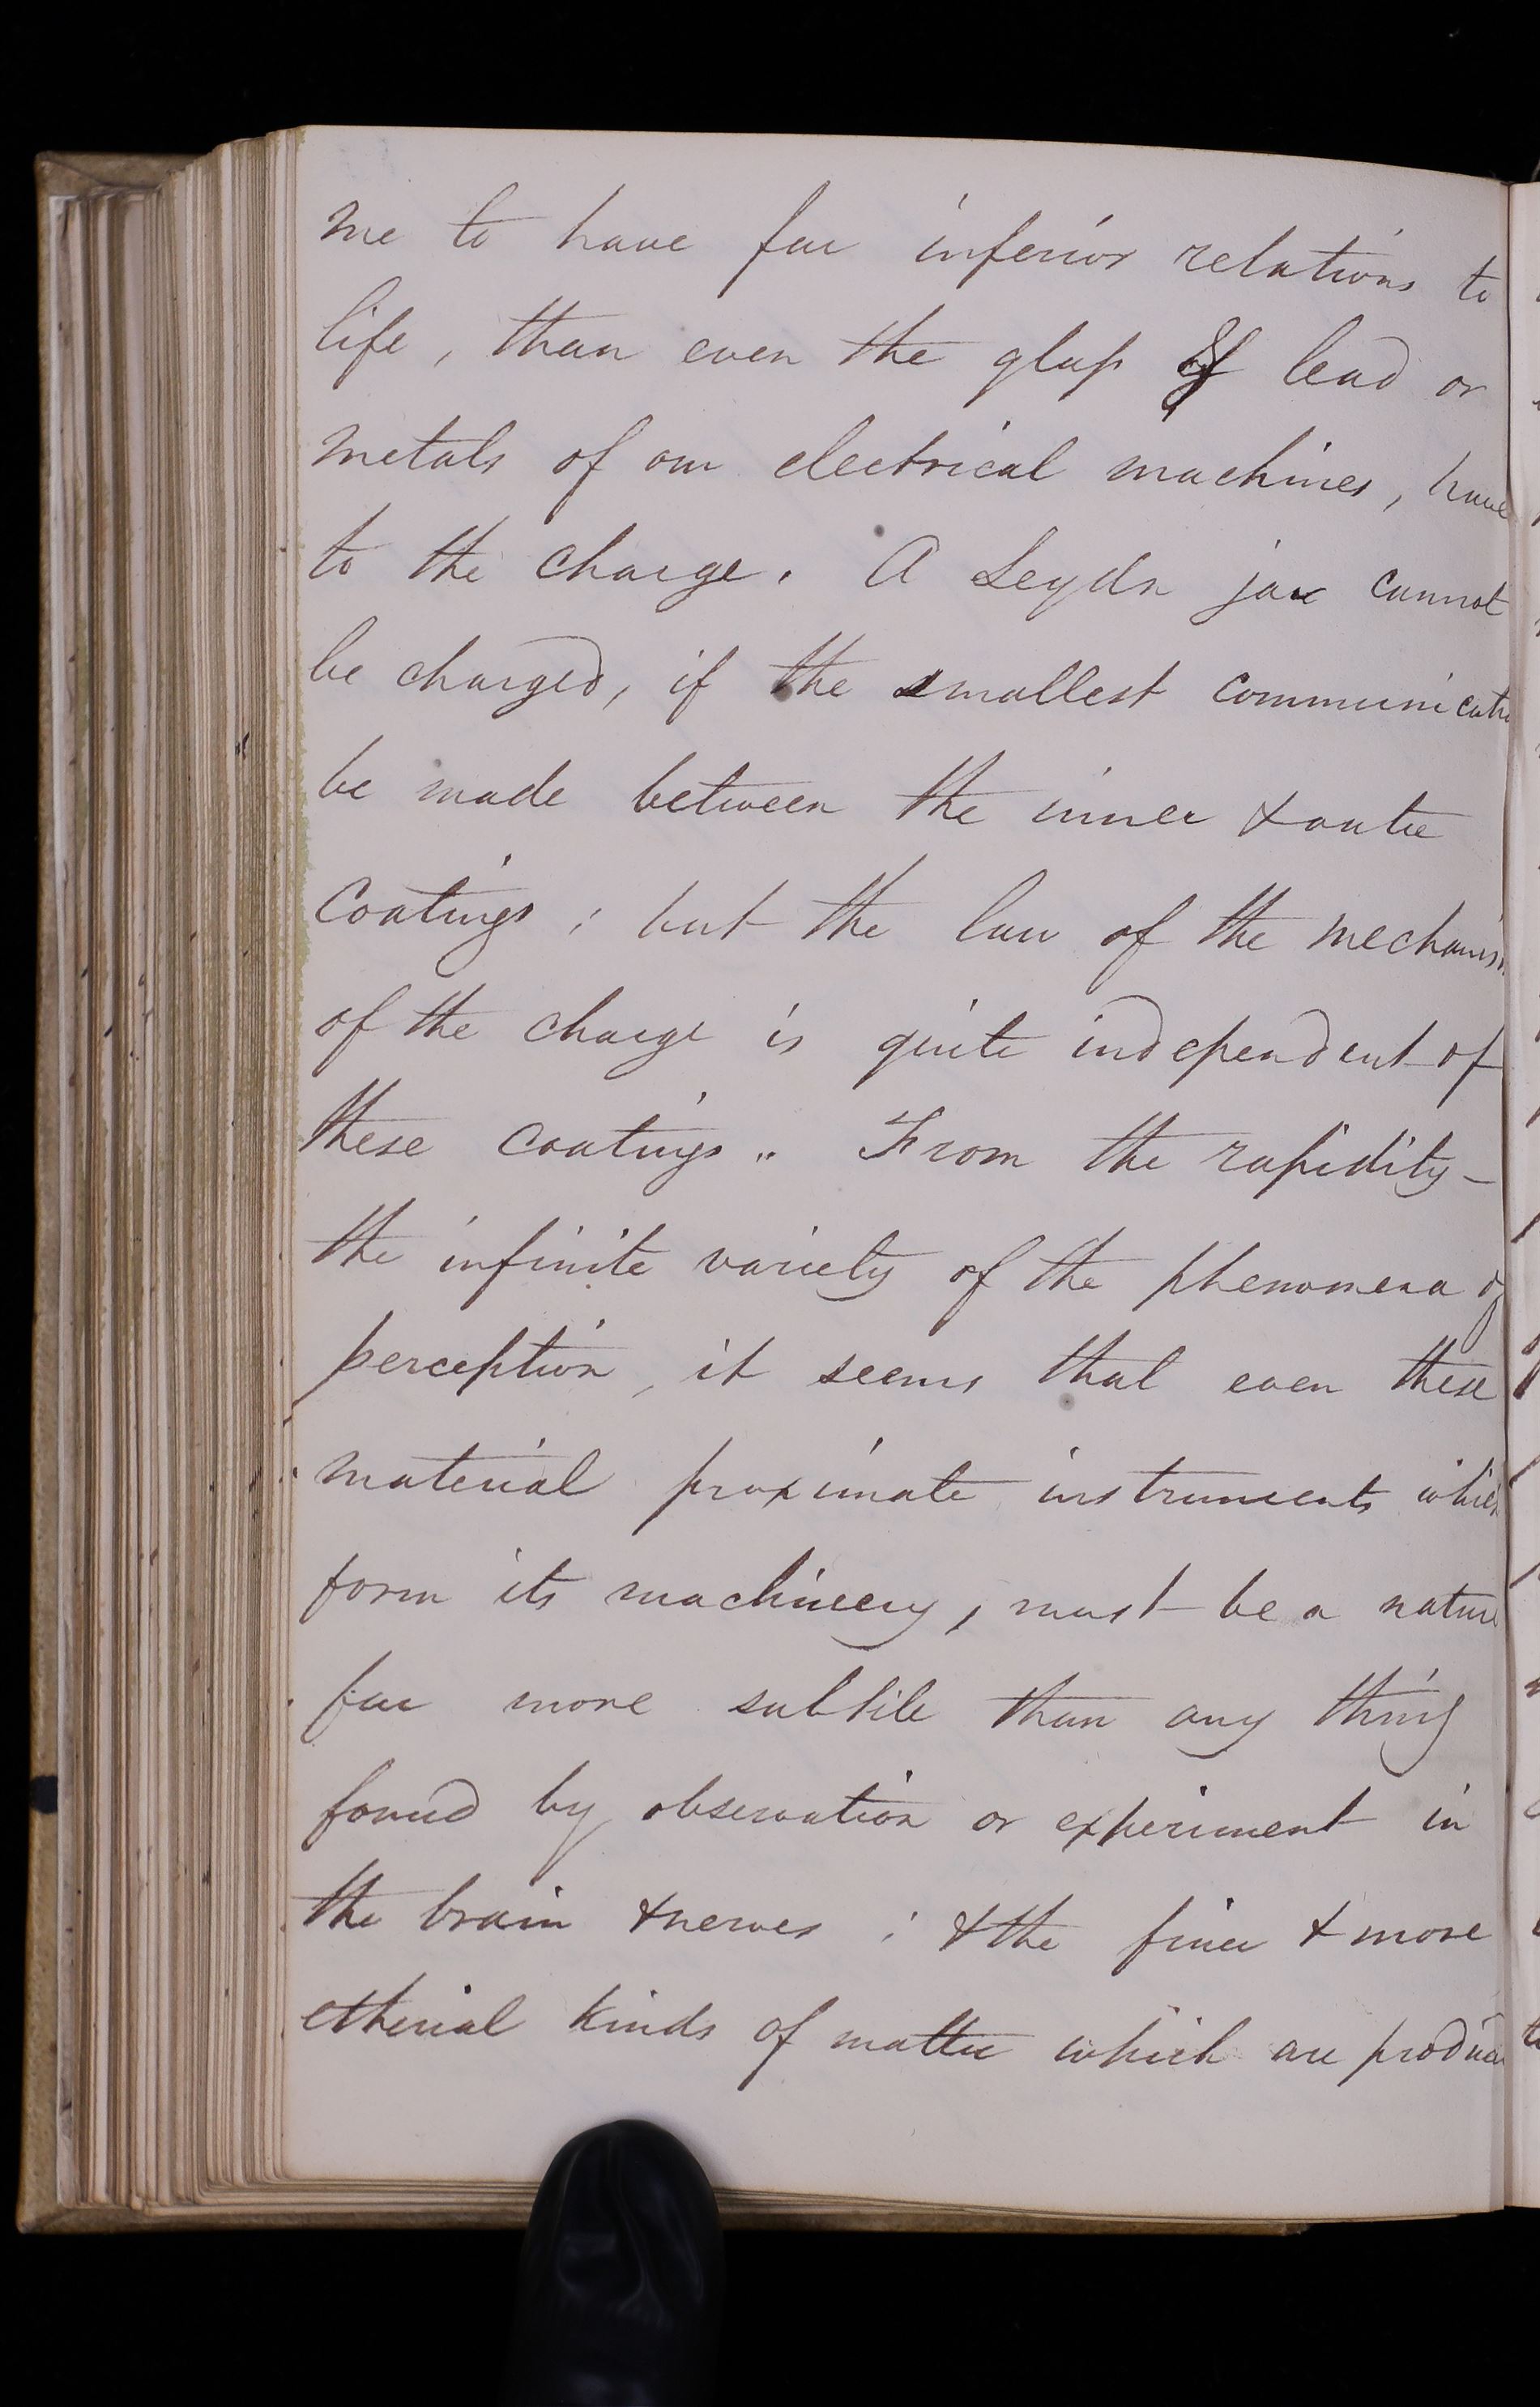 me to have far inferior relations to
life, than even the glass of lead or
metals of our electrical machines, have
to the charge. A Leydn jar cannot
be charged, if the smallest communicatio
be made between the inner & outer
Coatings; but the law of the mechanism
of the charge is quite independent of
these coatings.. From the rapidity –
the infinite variety of the phenomena of
perception, it seems that even these
material proximate instruments which
form its machinery, must be a nature
far more subtile than any thing
found by observation or experiment in
the brain & nerves ; & the finer & more
etherial kinds of matter which are